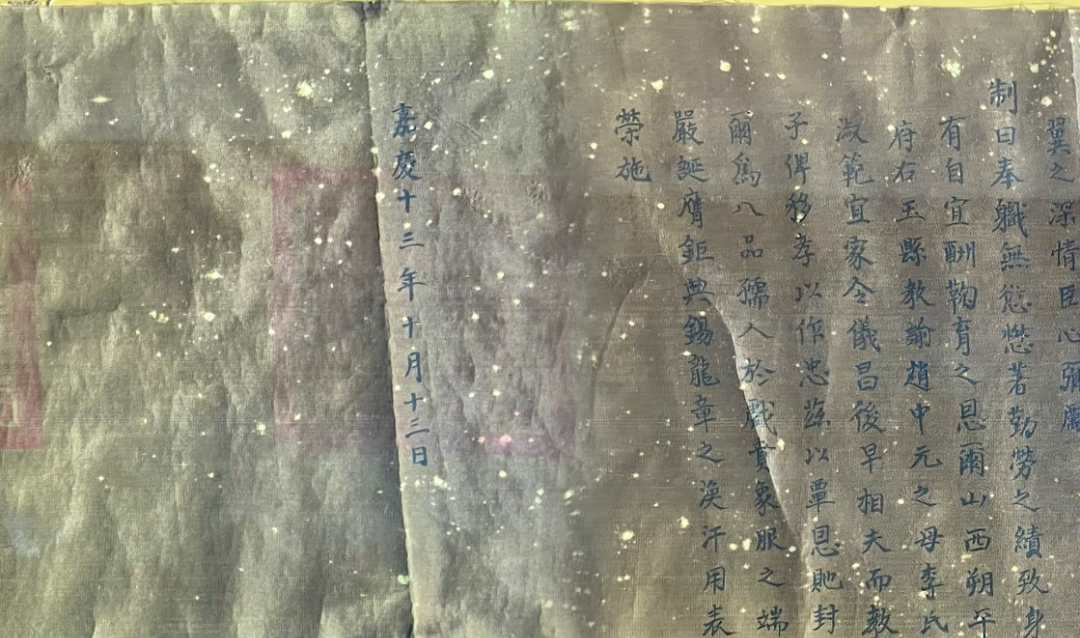 翼之深情臣心彌勵
制曰奉職無愆懋著勤勞之績致身
有自宜酬鞠育之恩爾山西朔平
府右玉縣教諭趙中元之母李氏
淑範宜家令儀昌後早相夫而教
子俾移孝以作忠茲以覃恩貤封
爾為八品孺人於戲賁象服之端
嚴誕膺鉅典錫龍章之渙汗用表
榮施
嘉慶十三年十月十三日